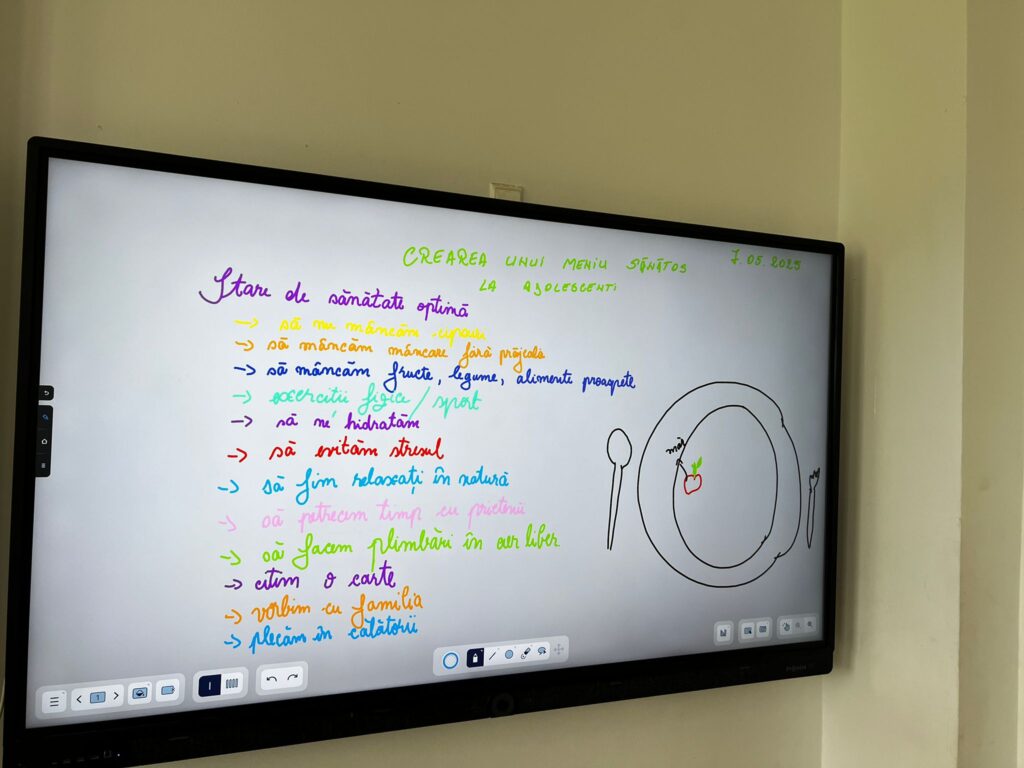 CREAREA UNUI MENIU SĂNĂTOS
LA ADOLESCENTI
7.05.2025
Stare de sănătate optimă
-> să nu mâncăm cipsuri
-> să mâncăm mâncare fără prăjeală
-> să mâncăm fructe, legume, alimente proaspete
-> exercitii fizice / sport
-> să ne hidratăm
-> să evităm stresul
-> să fim relaxați în natură
-> să petrecem timp cu prietenii
-> să facem plimbări în aer liber
-> citim o carte
-> vorbim cu familia
-> plecăm în călătorii
măr
1